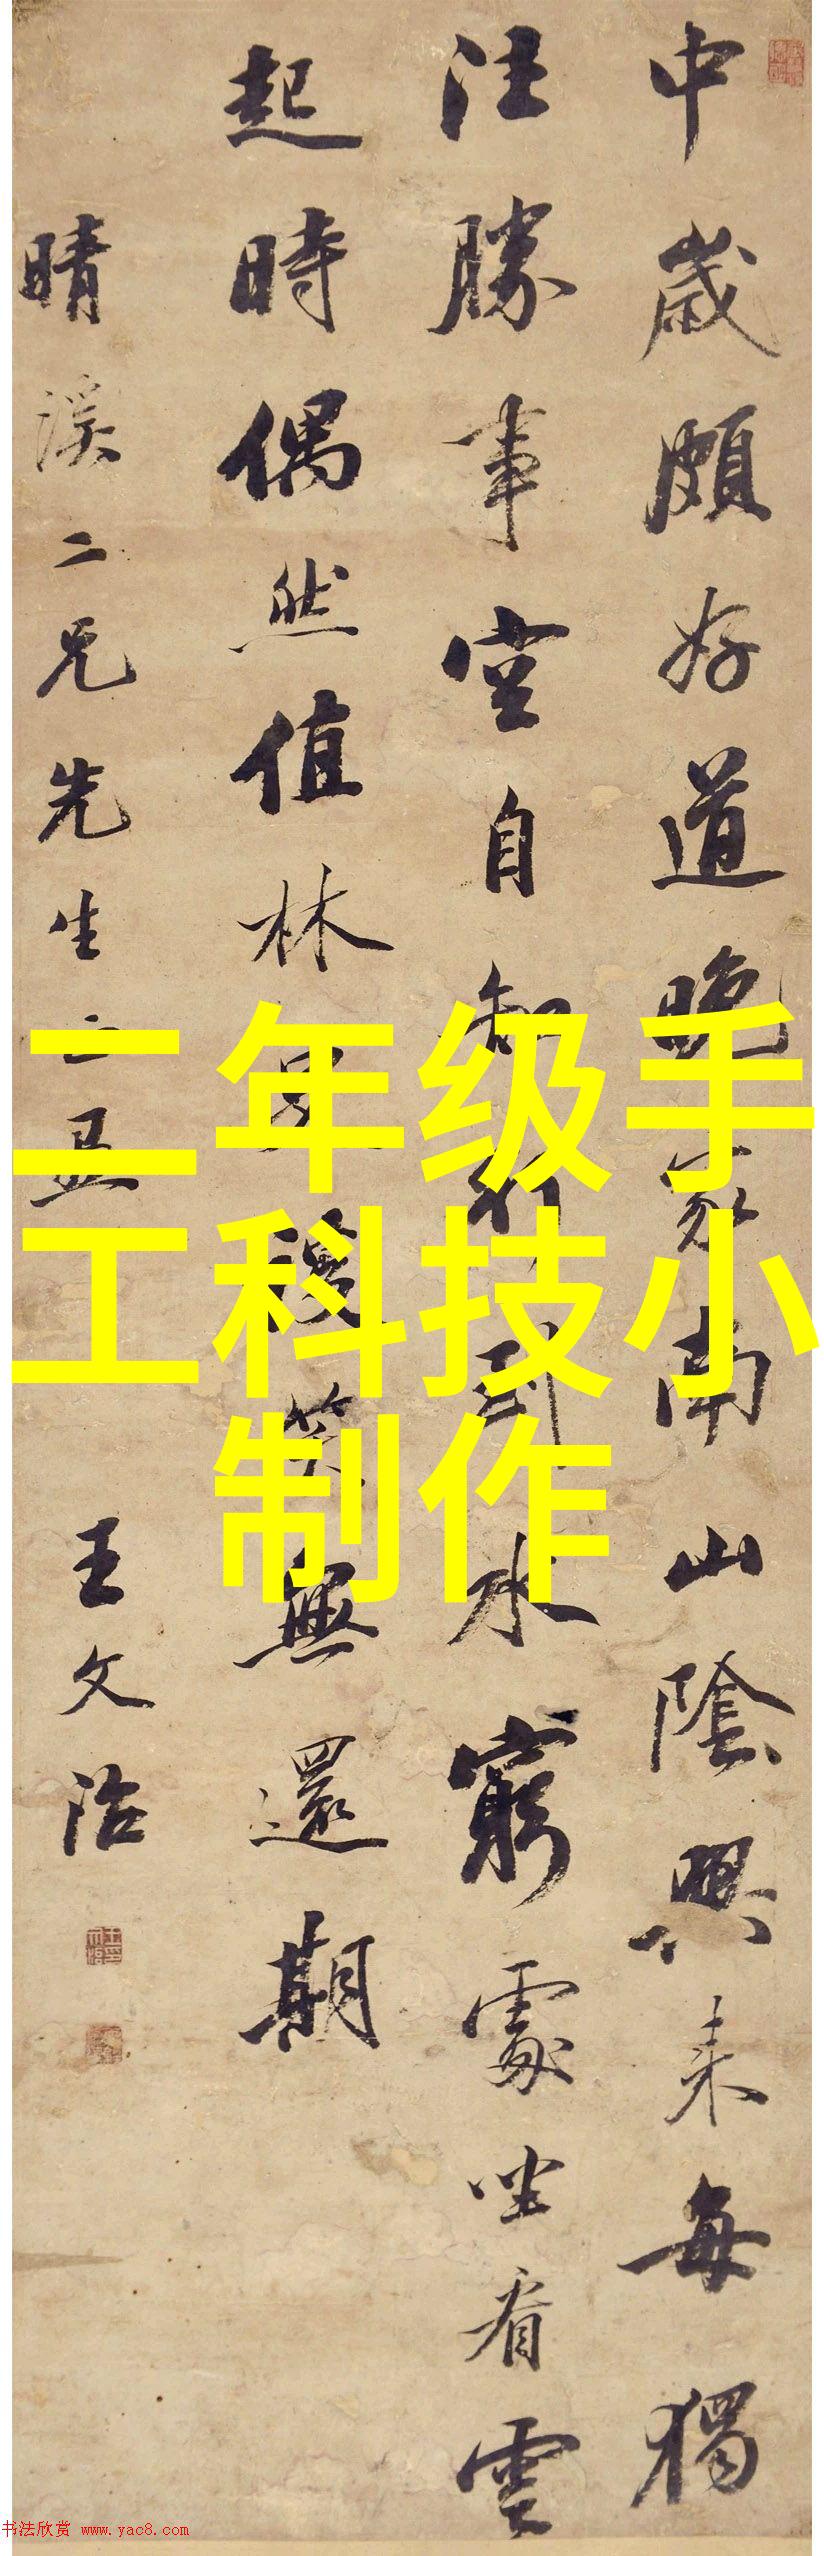 中歲頗好道晚家南山陰興來每獨
往勝事空自知行到水窮處坐看雲
起時偶然值林叟笑無還期
晴溪二兄先生
王文治
二年级手
工科技小
制作
书法欣赏 www.yac8.com